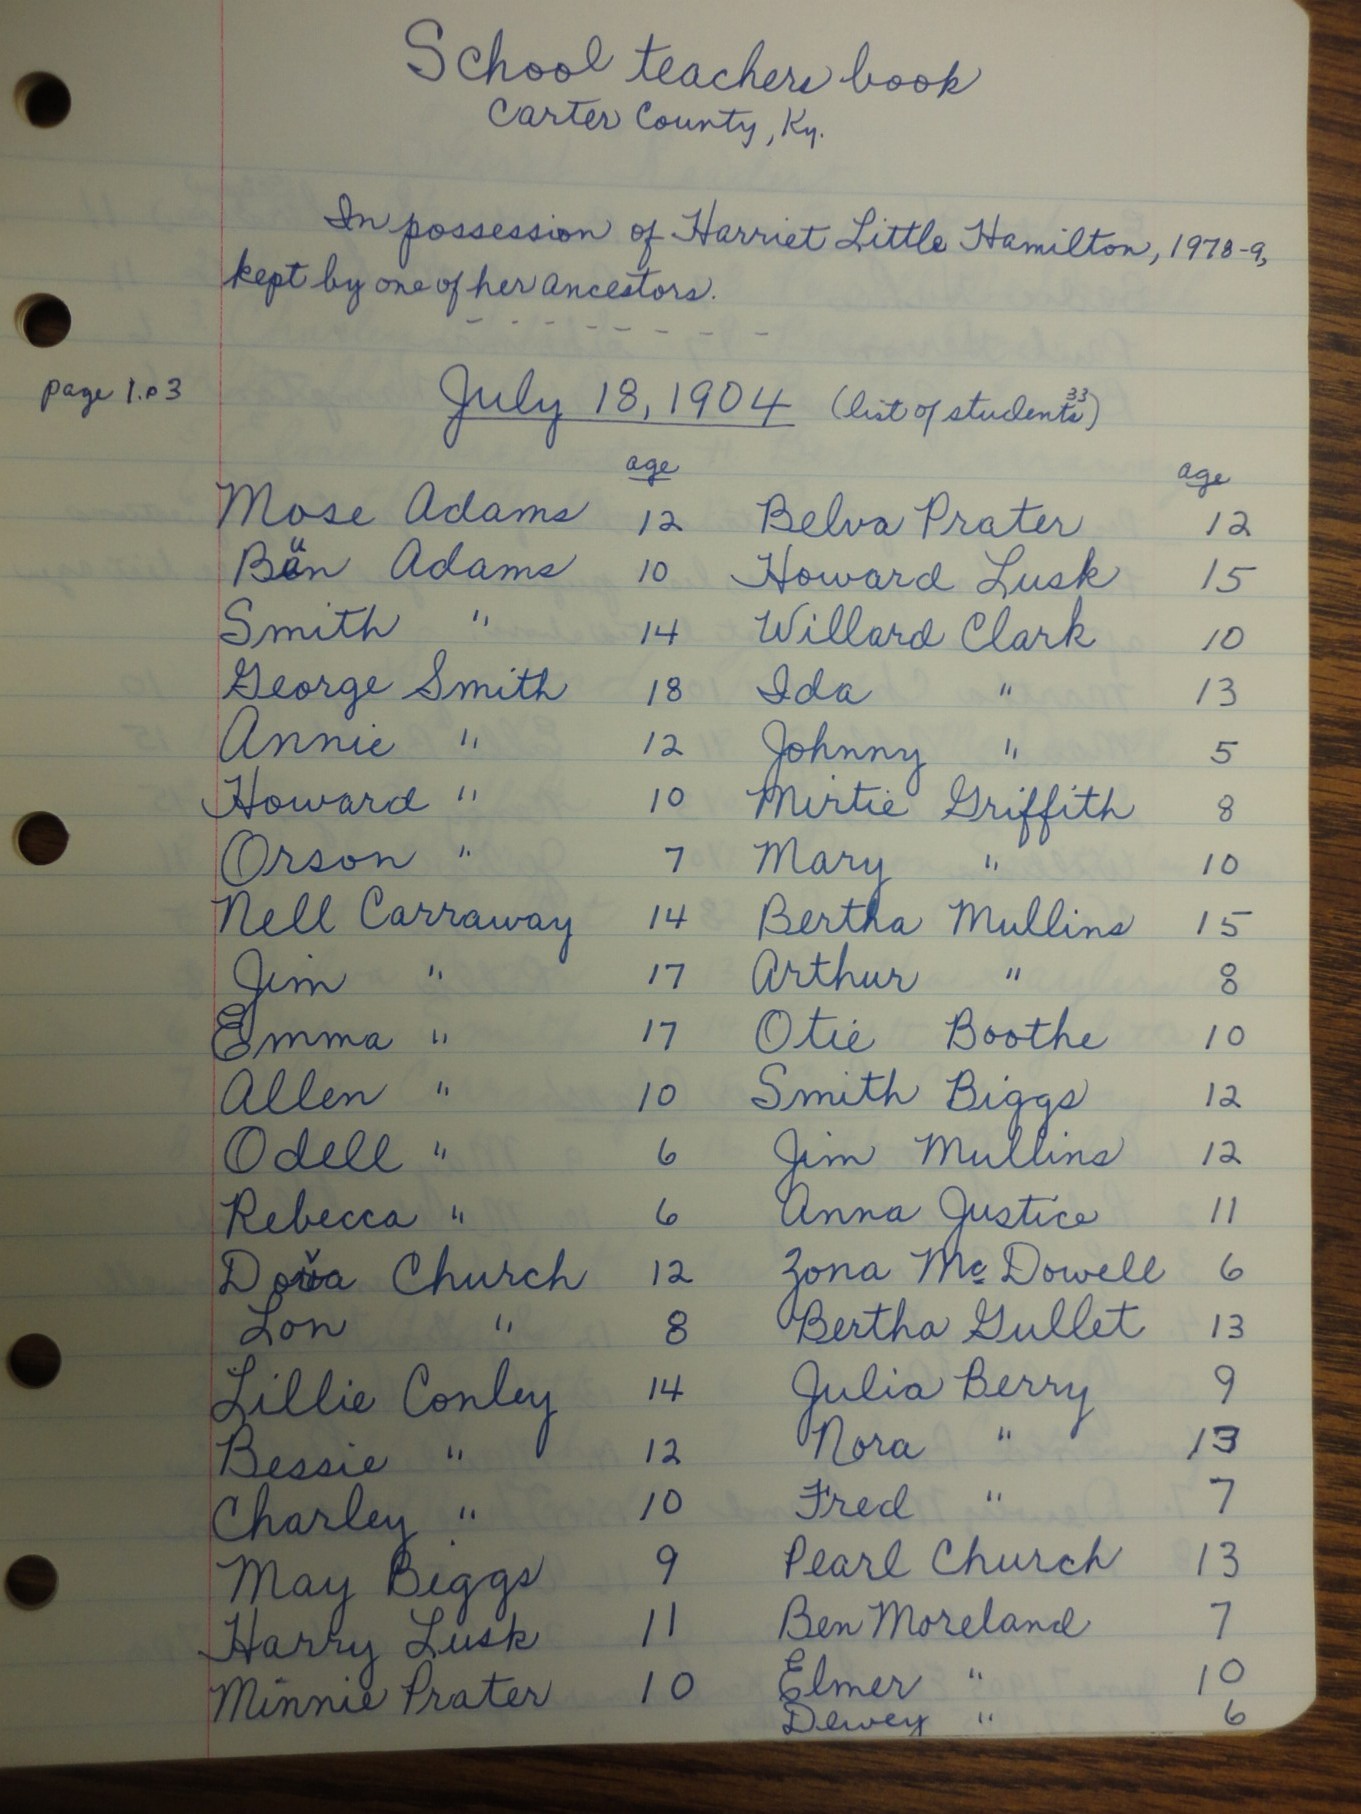 School teachers book
Carter County, Ky.
In possession of Harriet Little Hamilton, 1978-9,
kept by one of her ancestors.
- - - - - - - - -
page 1.p3
July 18, 1904 (list of students 33)
age age
Mose Adams 12 Belva Prater 12
Adams 10 Howard Lusk 15
Smith " 14 Willard Clark 10
George Smith 18 Ida " 13
Annie " 12 Johnny " 5
Howard " 10 Mirtie Griffith 8
Orson " 7 Mary " 10
Nell Carraway 14 Bertha Mullins 15
Jim " 17 Arthur " 8
Emma " 17 Otie Boothe 10
Allen " 10 Smith Biggs 12
Odell " 6 Jim Mullins 12
Rebecca " 6 Anna Justice 11
Church 12 Zona McDowell 6
Lon " 8 Bertha Gullet 13
Lillie Conley 14 Julia Berry 9
Bessie " 12 Nora " 13
Charley " 10 Fred " 7
May Biggs 9 Pearl Church 13
Harry Lusk 11 Ben Moreland 7
Minnie Prater 10 Elmer " 10
Dewey " 6